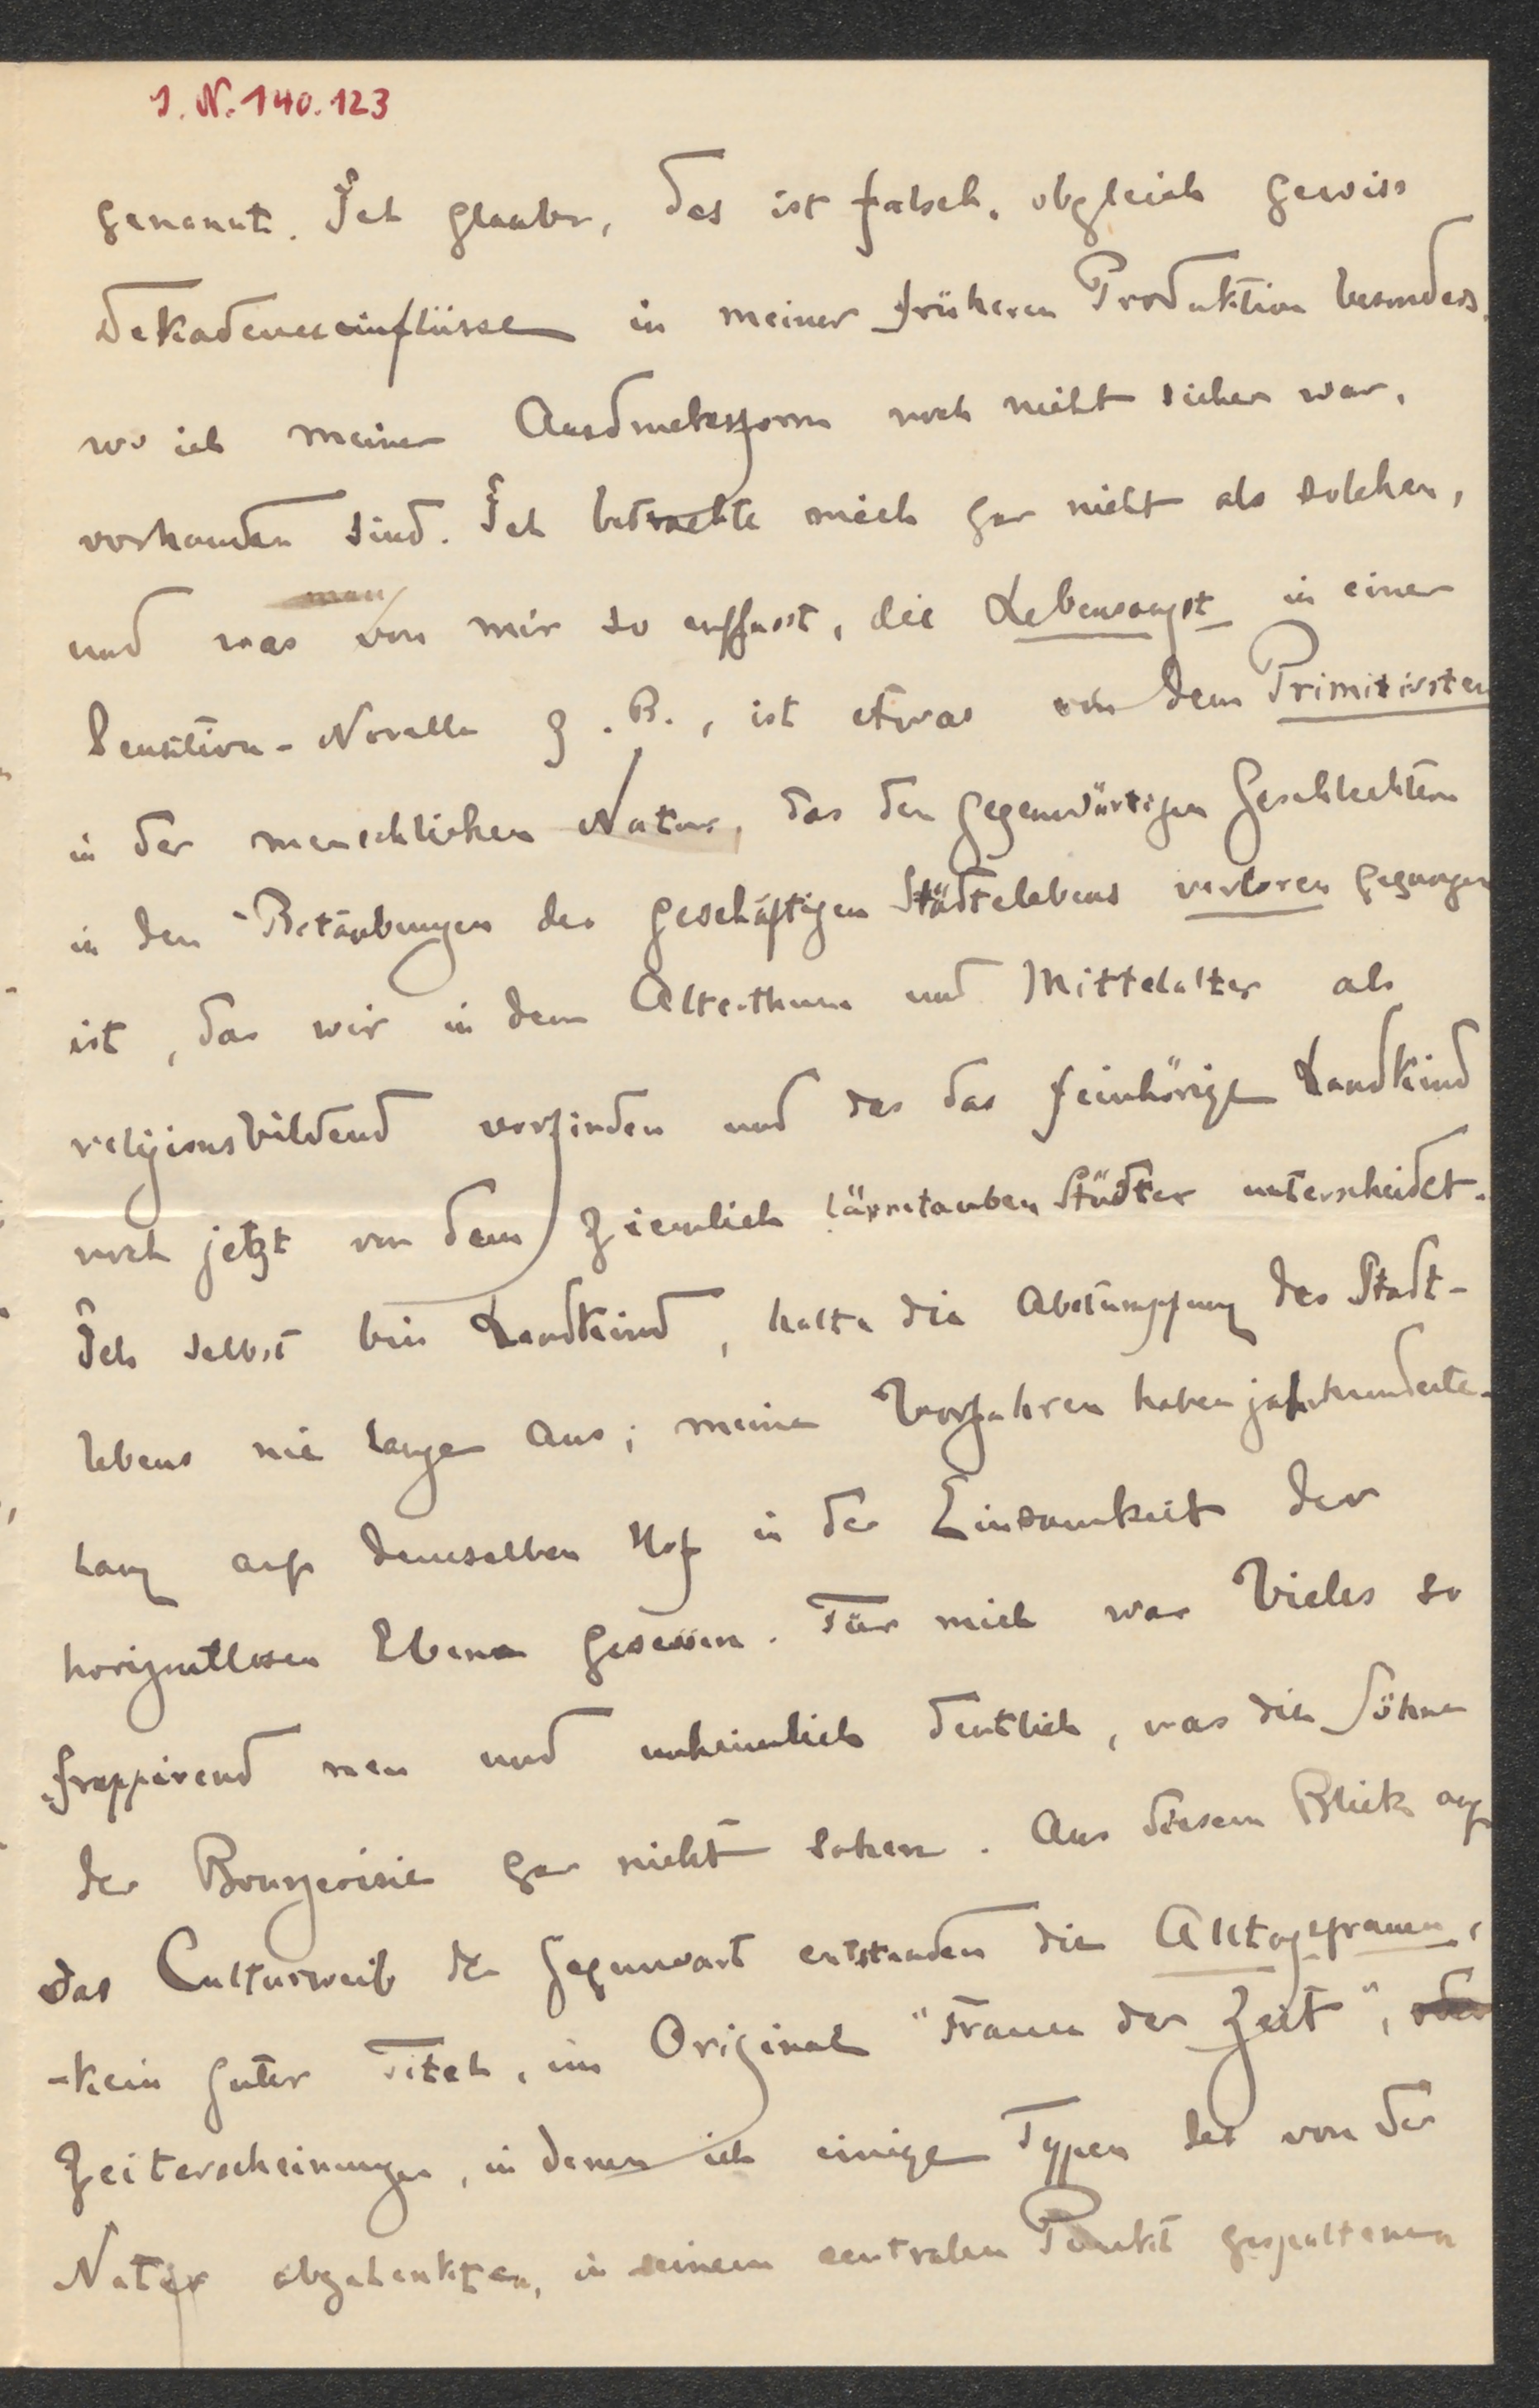 I. N. 140.123
genannt. Ich glaube, das ist falsch, obgleich gewiss
Dekadenceeinflüsse in meiner früheren Produktion besonders,
wo ich meiner Ausdrucksform noch nicht sicher war,
vorhanden sind. Ich betrachte mich gar nicht als solchen,
und was man von mir so auffasst, die Lebensangst in einer
Sensitiva-Novelle z. B., ist etwas von dem Primitivsten
in der menschlichen Natur, das den gegenwärtigen Geschlechtern
in den Betäubungen des geschäftigen Städtelebens verloren gegangen
ist, das wir in dem Alterthum und Mittelalter als
religionsbildend vorfinden und das das feinhörige Landkind
noch jetzt von dem ziemlich lärmtauben Städter unterscheidet.
Ich selbst bin Landkind, halte die Abstumpfung des Stadt-
lebens nie lange aus; meine Vorfahren haben jahrhunderte-
lang auf demselben Hof in der Einsamkeit der
horizontlosen Ebene gesessen. Für mich war Vieles so
frappirend neu und unheimlich deutlich, was die Söhne
der Bourgeoisie gar nicht sahen. Aus diesem Blick auf
das Culturweib der Gegenwart entstanden die Alltagsfrauen,
-kein guter Titel, im Original "Frauen der Zeit",
Zeiterscheinungen, in denen ich einige Typen des von der
Natur abgelenkten, in seinem centralen Punkt gespaltenen